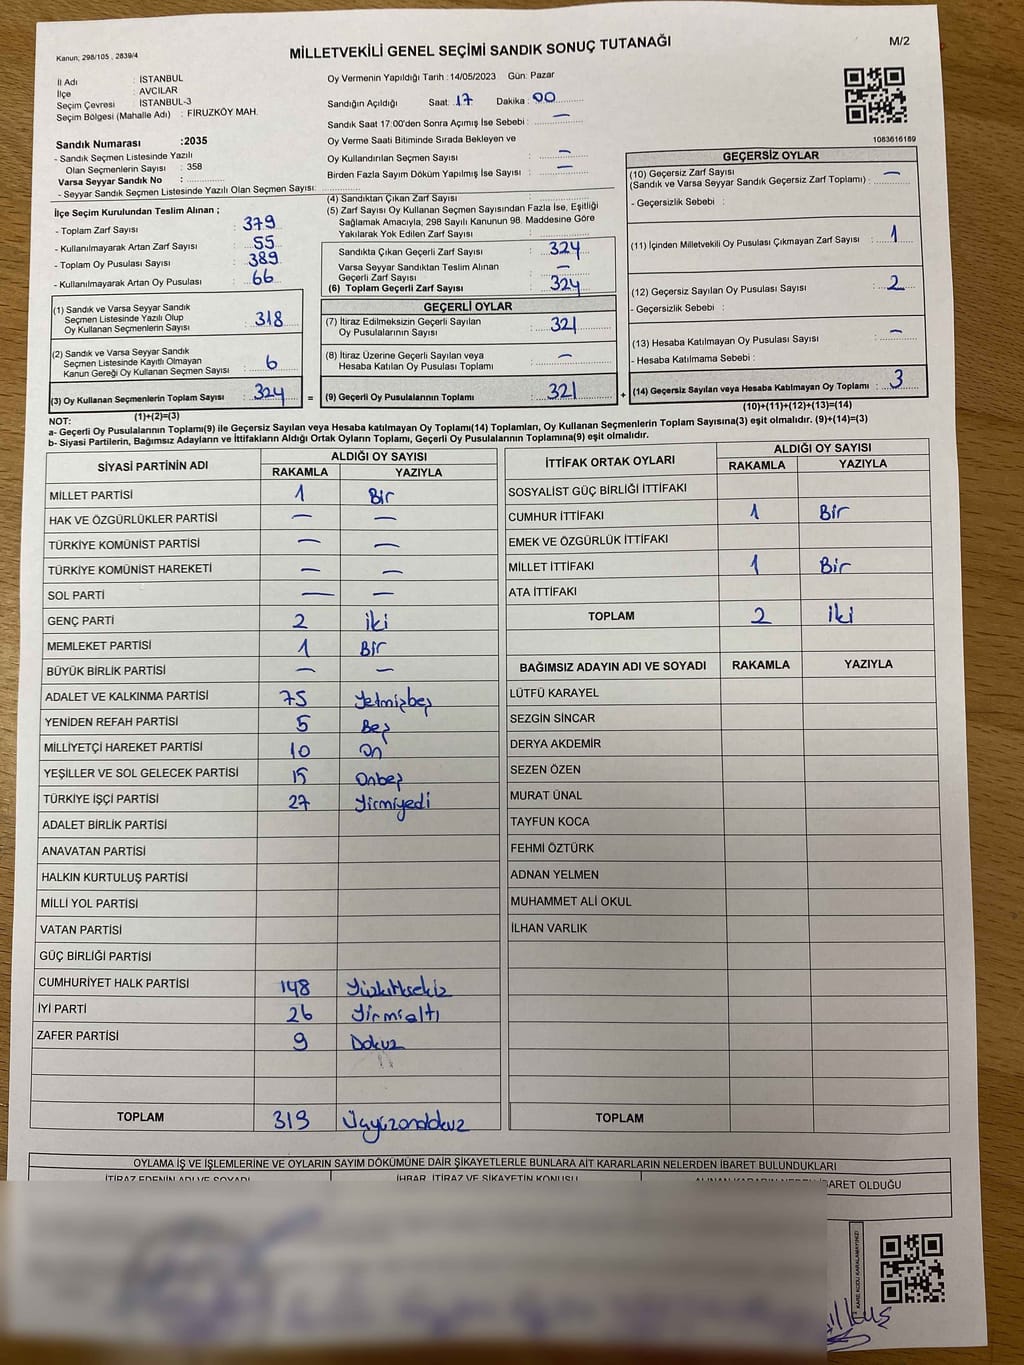 Kanun; 298/105 , 2839/4
MİLLETVEKİLİ GENEL SEÇİMİ SANDIK SONUÇ TUTANAĞI
M/2
İl Adı : İSTANBUL
İlçe : AVCILAR
Seçim Çevresi : İSTANBUL-3
Seçim Bölgesi (Mahalle Adı) : FİRUZKÖY MAH.
Sandık Numarası :2035
- Sandık Seçmen Listesinde Yazılı
Olan Seçmenlerin Sayısı : 358
Varsa Seyyar Sandık No :
- Seyyar Sandık Seçmen Listesinde Yazılı Olan Seçmen Sayısı:
Oy Vermenin Yapıldığı Tarih :14/05/2023 Gün: Pazar
Sandığın Açıldığı Saat: 17 Dakika : 00
Sandık Saat 17:00'den Sonra Açımış İse Sebebi : —
Oy Verme Saati Bitiminde Sırada Bekleyen ve
Oy Kullandırılan Seçmen Sayısı : —
Birden Fazla Sayım Döküm Yapılmış İse Sayısı : —
1083616189
İlçe Seçim Kurulundan Teslim Alınan ;
- Toplam Zarf Sayısı : 379
- Kullanılmayarak Artan Zarf Sayısı : 55
- Toplam Oy Pusulası Sayısı : 389
- Kullanılmayarak Artan Oy Pusulası : 66
(1) Sandık ve Varsa Seyyar Sandık
Seçmen Listesinde Yazılı Olup
Oy Kullanan Seçmenlerin Sayısı : 318
(2) Sandık ve Varsa Seyyar Sandık
Seçmen Listesinde Kayıtlı Olmayan
Kanun Gereği Oy Kullanan Seçmen Sayısı : 6
(3) Oy Kullanan Seçmenlerin Toplam Sayısı : 324
(1)+(2)=(3)
(4) Sandıktan Çıkan Zarf Sayısı :
(5) Zarf Sayısı Oy Kullanan Seçmen Sayısından Fazla İse, Eşitliği
Sağlamak Amacıyla, 298 Sayılı Kanunun 98. Maddesine Göre
Yakılarak Yok Edilen Zarf Sayısı :
Sandıkta Çıkan Geçerli Zarf Sayısı : 324
Varsa Seyyar Sandıktan Teslim Alınan
Geçerli Zarf Sayısı : —
(6) Toplam Geçerli Zarf Sayısı : 324
GEÇERLİ OYLAR
(7) İtiraz Edilmeksizin Geçerli Sayılan
Oy Pusulalarının Sayısı : 321
(8) İtiraz Üzerine Geçerli Sayılan veya
Hesaba Katılan Oy Pusulası Toplamı : —
= (9) Geçerli Oy Pusulalarının Toplamı : 321 +
GEÇERSİZ OYLAR
(10) Geçersiz Zarf Sayısı
(Sandık ve Varsa Seyyar Sandık Geçersiz Zarf Toplamı) : —
- Geçersizlik Sebebi :
(11) İçinden Milletvekili Oy Pusulası Çıkmayan Zarf Sayısı : 1
(12) Geçersiz Sayılan Oy Pusulası Sayısı : 2
- Geçersizlik Sebebi :
(13) Hesaba Katılmayan Oy Pusulası Sayısı : —
- Hesaba Katılmama Sebebi :
(14) Geçersiz Sayılan veya Hesaba Katılmayan Oy Toplamı : 3
(10)+(11)+(12)+(13)=(14)
NOT:
a- Geçerli Oy Pusulalarının Toplamı(9) ile Geçersiz Sayılan veya Hesaba katılmayan Oy Toplamı(14) Toplamları, Oy Kullanan Seçmenlerin Toplam Sayısına(3) eşit olmalıdır. (9)+(14)=(3)
b- Siyasi Partilerin, Bağımsız Adayların ve İttifakların Aldığı Ortak Oyların Toplamı, Geçerli Oy Pusulalarının Toplamına(9) eşit olmalıdır.
SİYASİ PARTİNİN ADI ALDIĞI OY SAYISI
RAKAMLA YAZIYLA
MİLLET PARTİSİ 1 Bir
HAK VE ÖZGÜRLÜKLER PARTİSİ — —
TÜRKİYE KOMÜNİST PARTİSİ — —
TÜRKİYE KOMÜNİST HAREKETİ — —
SOL PARTİ — —
GENÇ PARTİ 2 İki
MEMLEKET PARTİSİ 1 Bir
BÜYÜK BİRLİK PARTİSİ — —
ADALET VE KALKINMA PARTİSİ 75 Yetmişbeş
YENİDEN REFAH PARTİSİ 5 Beş
MİLLİYETÇİ HAREKET PARTİSİ 10 On
YEŞİLLER VE SOL GELECEK PARTİSİ 15 Onbeş
TÜRKİYE İŞÇİ PARTİSİ 27 Yirmiyedi
ADALET BİRLİK PARTİSİ
ANAVATAN PARTİSİ
HALKIN KURTULUŞ PARTİSİ
MİLLİ YOL PARTİSİ
VATAN PARTİSİ
GÜÇ BİRLİĞİ PARTİSİ
CUMHURİYET HALK PARTİSİ 148 Yüzkırksekiz
İYİ PARTİ 26 Yirmialtı
ZAFER PARTİSİ 9 Dokuz
TOPLAM 319 Üçyüzondokuz
İTTİFAK ORTAK OYLARI ALDIĞI OY SAYISI
RAKAMLA YAZIYLA
SOSYALİST GÜÇ BİRLİĞİ İTTİFAKI
CUMHUR İTTİFAKI 1 Bir
EMEK VE ÖZGÜRLÜK İTTİFAKI
MİLLET İTTİFAKI 1 Bir
ATA İTTİFAKI
TOPLAM 2 İki
BAĞIMSIZ ADAYIN ADI VE SOYADI RAKAMLA YAZIYLA
LÜTFÜ KARAYEL
SEZGİN SİNCAR
DERYA AKDEMİR
SEZEN ÖZEN
MURAT ÜNAL
TAYFUN KOCA
FEHMİ ÖZTÜRK
ADNAN YELMEN
MUHAMMET ALİ OKUL
İLHAN VARLIK
TOPLAM
OYLAMA İŞ VE İŞLEMLERİNE VE OYLARIN SAYIM DÖKÜMÜNE DAİR ŞİKAYETLERLE BUNLARA AİT KARARLARIN NELERDEN İBARET BULUNDUKLARI
İTİRAZ EDENİN ADI VE SOYADI İHBAR, İTİRAZ VE ŞİKAYETİN KONUSU ALINAN KARARIN NEDEN İBARET OLDUĞU
KARE KODU KARALAMAYINIZ!